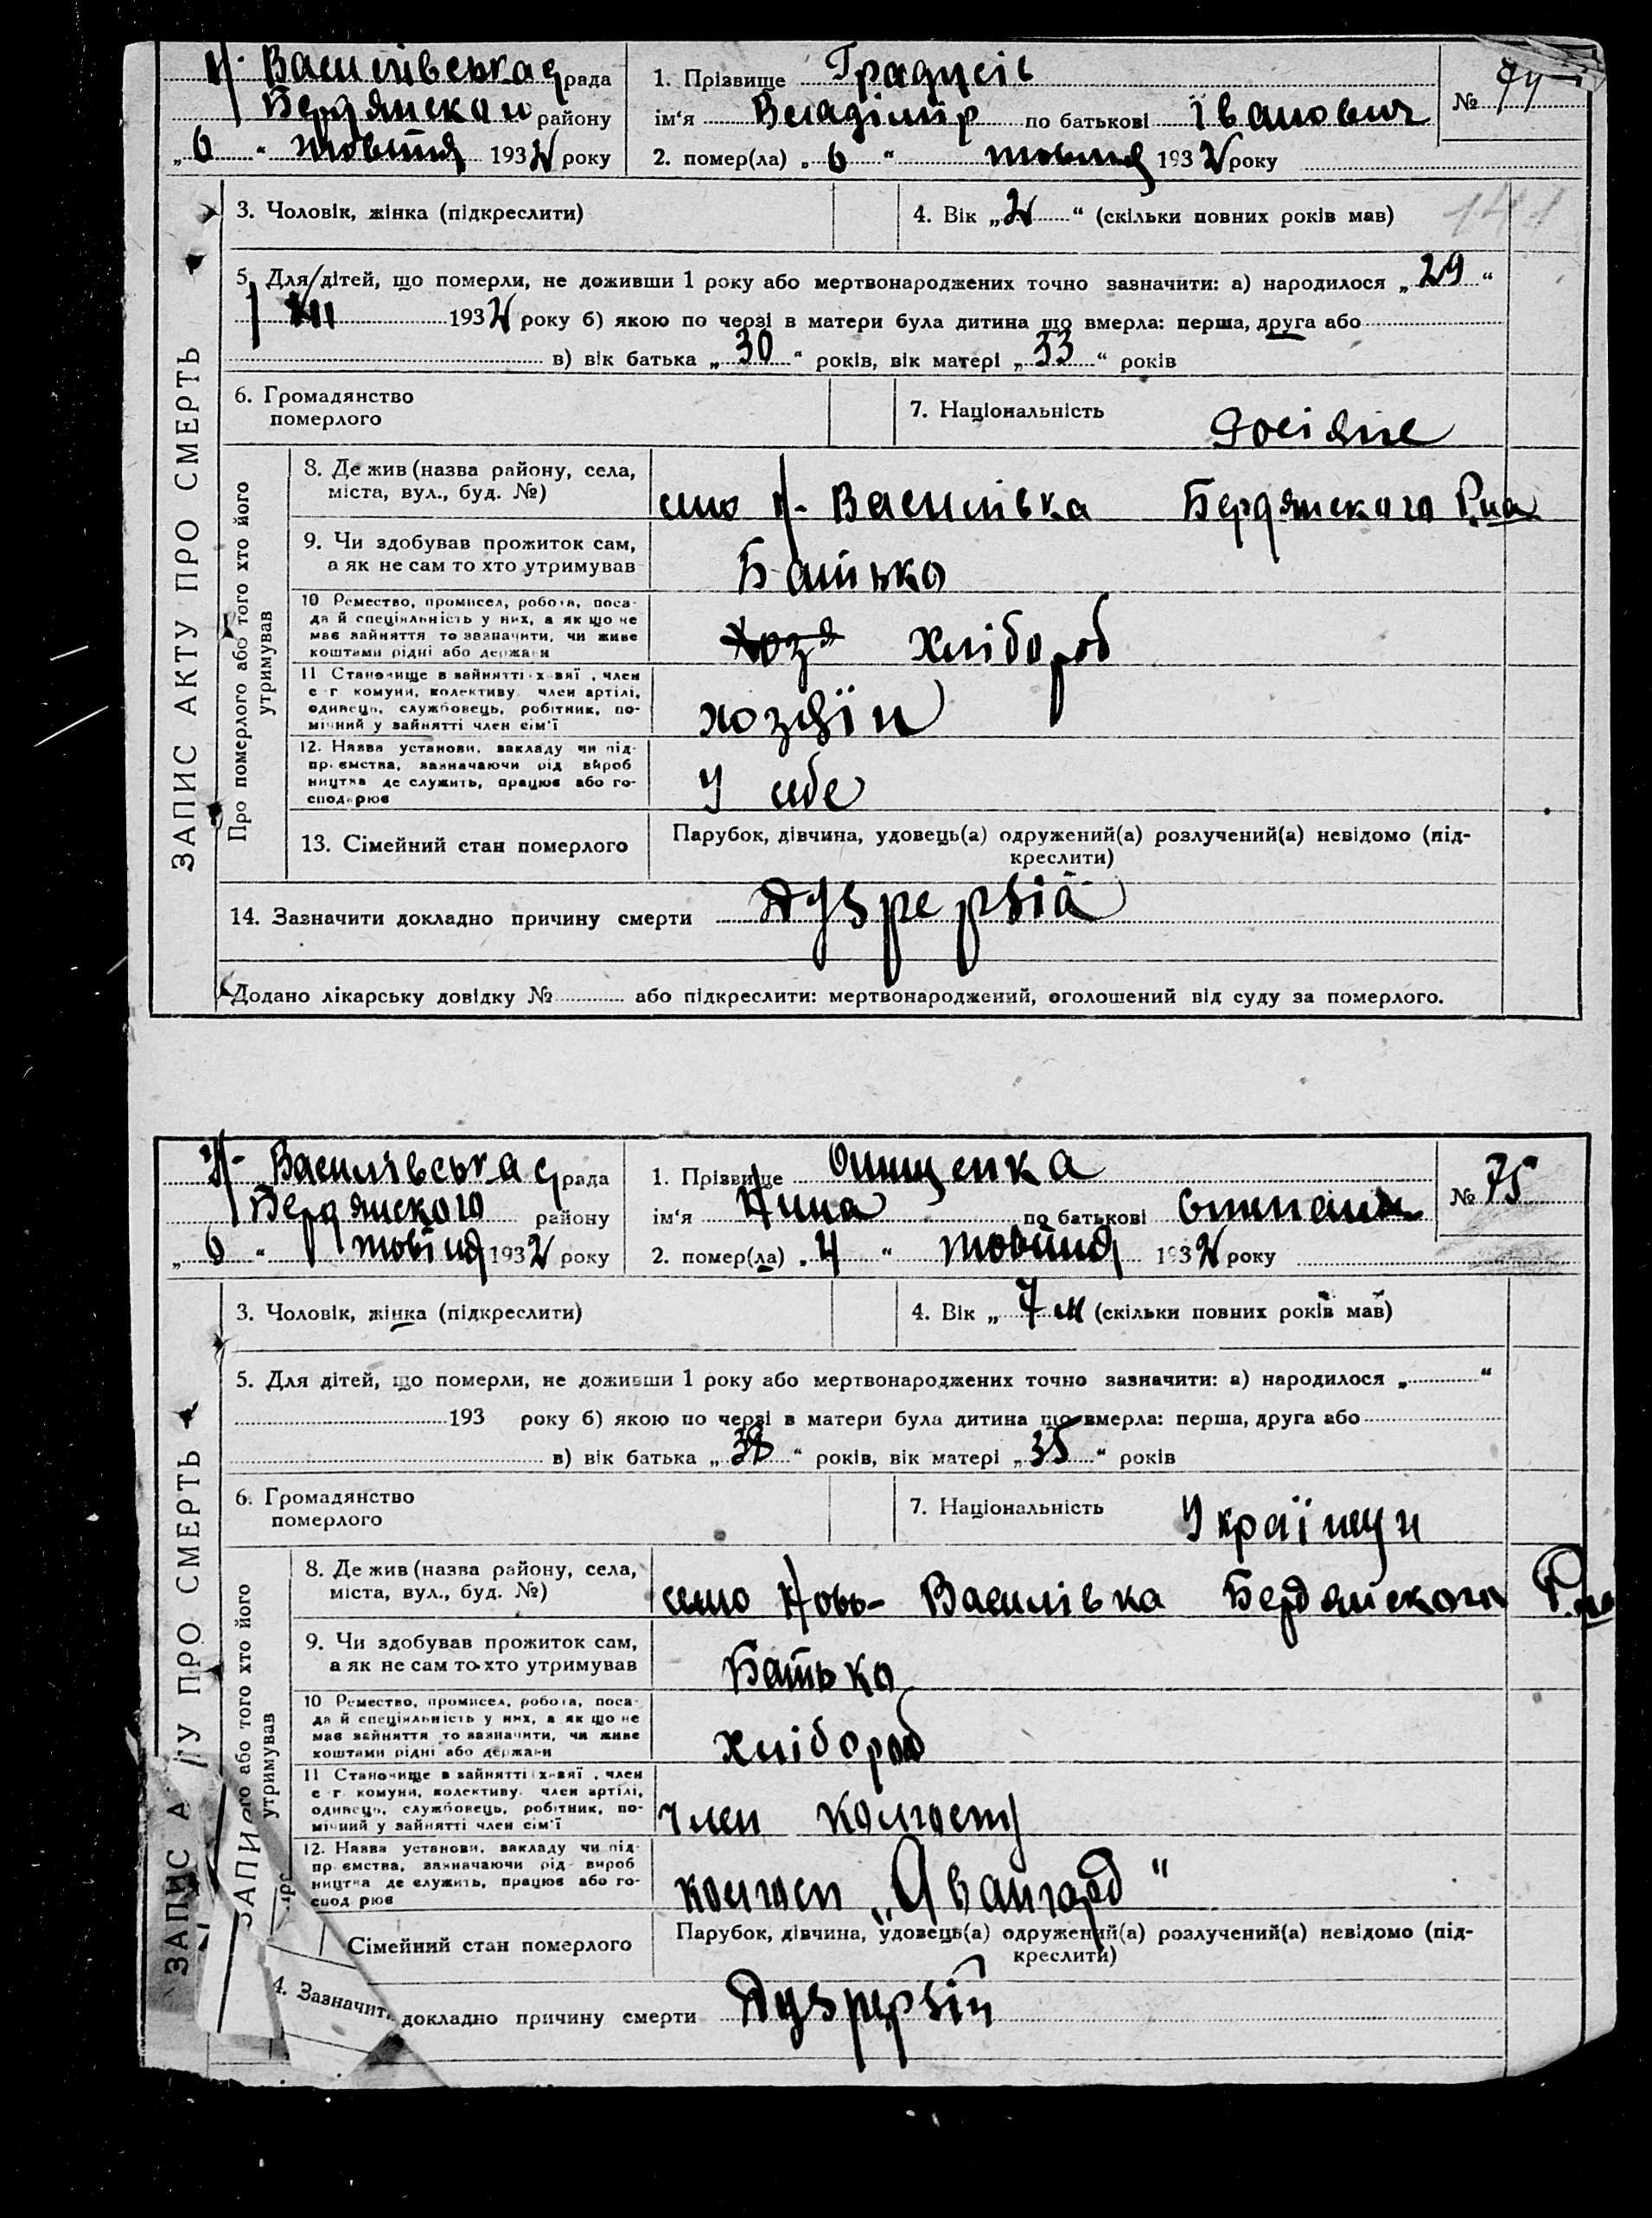 Н. Василівська с/рада
Бердянского району
„ 6 “ жовтня 1932 року
1. Прізвище
ім'я Владімір по батькові Іванович
№ 74
2. помер(ла) „ 6 “ жовтня 1932 року
ЗАПИС АКТУ ПРО СМЕРТЬ
3. Чоловік, жінка (підкреслити)
4. Вік „ 2 “ (скільки повних років мав)
141
5. Для дітей, що померли, не доживши 1 року або мертвонароджених точно зазначити: а) народилося „ 29 “
193 року б) якою по черзі в матери була дитина що вмерла: перша, друга або
в) вік батька „ 30 “ років, вік матері „ 33 “ років
6. Громадянство
померлого
7. Національність росіяне
Про померлого або того хто його
утримував
8. Де жив (назва району, села,
міста, вул., буд. №)
село Н- Василівка Бердянского Р-на
9. Чи здобував прожиток сам,
а як не сам то хто утримував
Батько
10 Ремество, промисел, робота, поса-
да й спеціяльність у них, а як що не
має зайняття то зазначити, чи живе
коштами рідні або держави
Хозя хлібороб
11 Становище в зайнятті: х-зяї , член
с г комуни, колективу. член артілі,
одинець, службовець, робітник, по-
мічний у зайнятті член сім'ї
хозяїн
12. Назва установи, закладу чи під-
пр.ємства, зазначаючи від вироб
ництва де служить, працює або го-
сподарює
У себе
13. Сімейний стан померлого
Парубок, дівчина, удовець(а) одружений(а) розлучений(а) невідомо (під-
креслити)
14. Зазначити докладно причину смерти Дyspepsia
Додано лікарську довідку № або підкреслити: мертвонароджений, оголошений від суду за померлого.
Н- Василівська с/рада
Бердянского району
„ 6 “ жовтня 1932 року
1. Прізвище Онищенка
ім'я Нина по батькові
№ 75
2. помер(ла) „ 4 “ жовтня 1932 року
ЗАПИС А /У ПРО СМЕРТЬ
3. Чоловік, жінка (підкреслити)
4. Вік „ 7 м (скільки повних років мав)
5. Для дітей, що померли, не доживши 1 року або мертвонароджених точно зазначити: а) народилося „ “
193 року б) якою по черзі в матери була дитина що вмерла: перша, друга або
в) вік батька „ 38 “ років, вік матері „ 35 “ років
6. Громадянство
померлого
7. Національність Українци
ого або того хто його
утримував
8. Де жив (назва району, села,
міста, вул., буд. №)
село Ново- Василівка Бердянского Р-на
9. Чи здобував прожиток сам,
а як не сам то хто утримував
Батько
10 Ремество, промисел, робота, поса-
да й спеціяльність у них, а як що не
має зайняття то зазначити, чи живе
коштами рідні або держави
хлібороб
11 Становище в зайнятті х-зяї , член
с г комуни, колективу. член артілі,
одинець, службовець, робітник, по-
мічний у зайнятті член сім'ї
член колгоспу
12. Назва установи, закладу чи під-
пр ємства, зазначаючи від вироб
ництва де служить, працює або го-
спод рює
колгосп „Авангард“
ЗАПИ
Сімейний стан померлого
Парубок, дівчина, удовець(а) одружений(а) розлучений(а) невідомо (під-
креслити)
4. Зазначит. докладно причину смерти